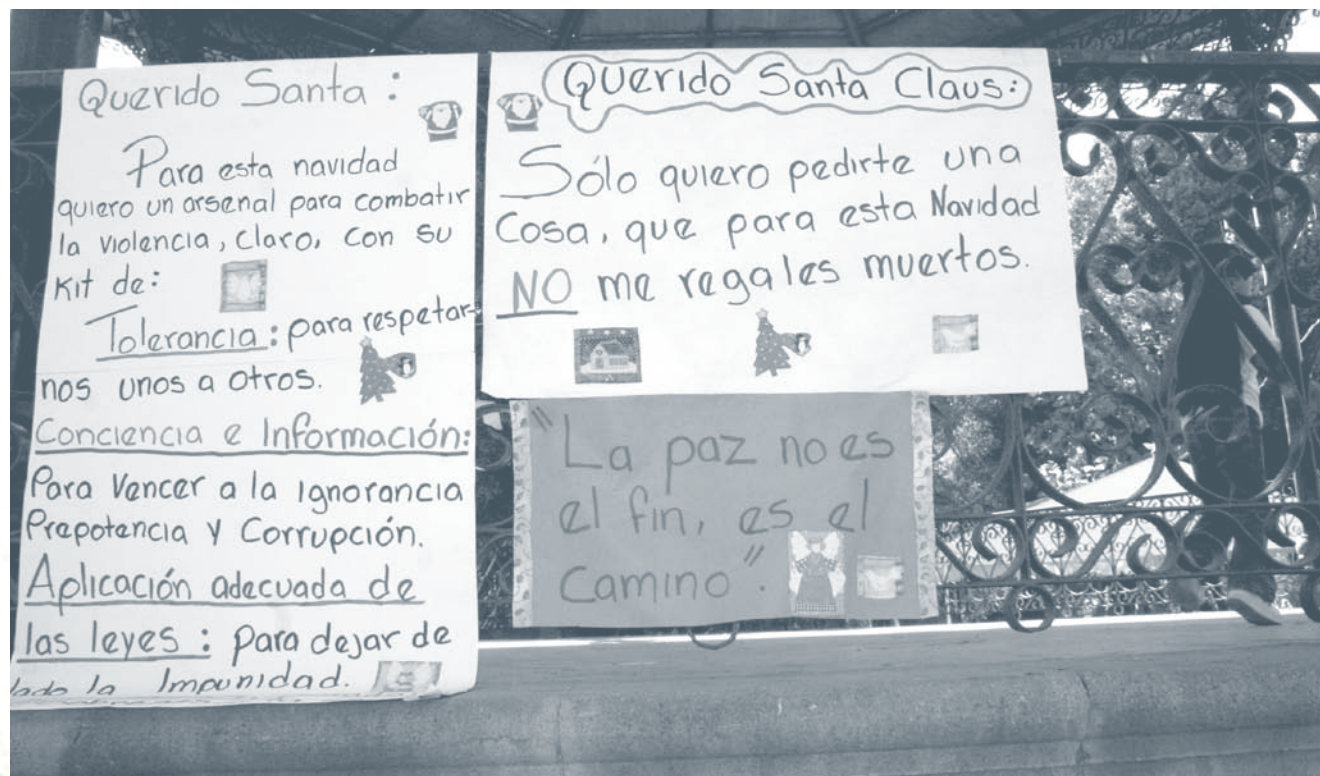 Querido Santa :
Para esta navidad
quiero un arsenal para combatir
la violencia, Claro, con su
Kit de:
Tolerancia : para respetar-
nos unos a otros.
Conciencia e Información:
Para Vencer a la Ignorancia
Prepotencia y Corrupción.
Aplicación adecuada de
las leyes : para dejar de
lado la Impunidad.
Querido Santa Claus:
Sólo quiero pedirte una
Cosa, que para esta Navidad
NO me regales muertos.
"La paz no es
el fin, es el
Camino".